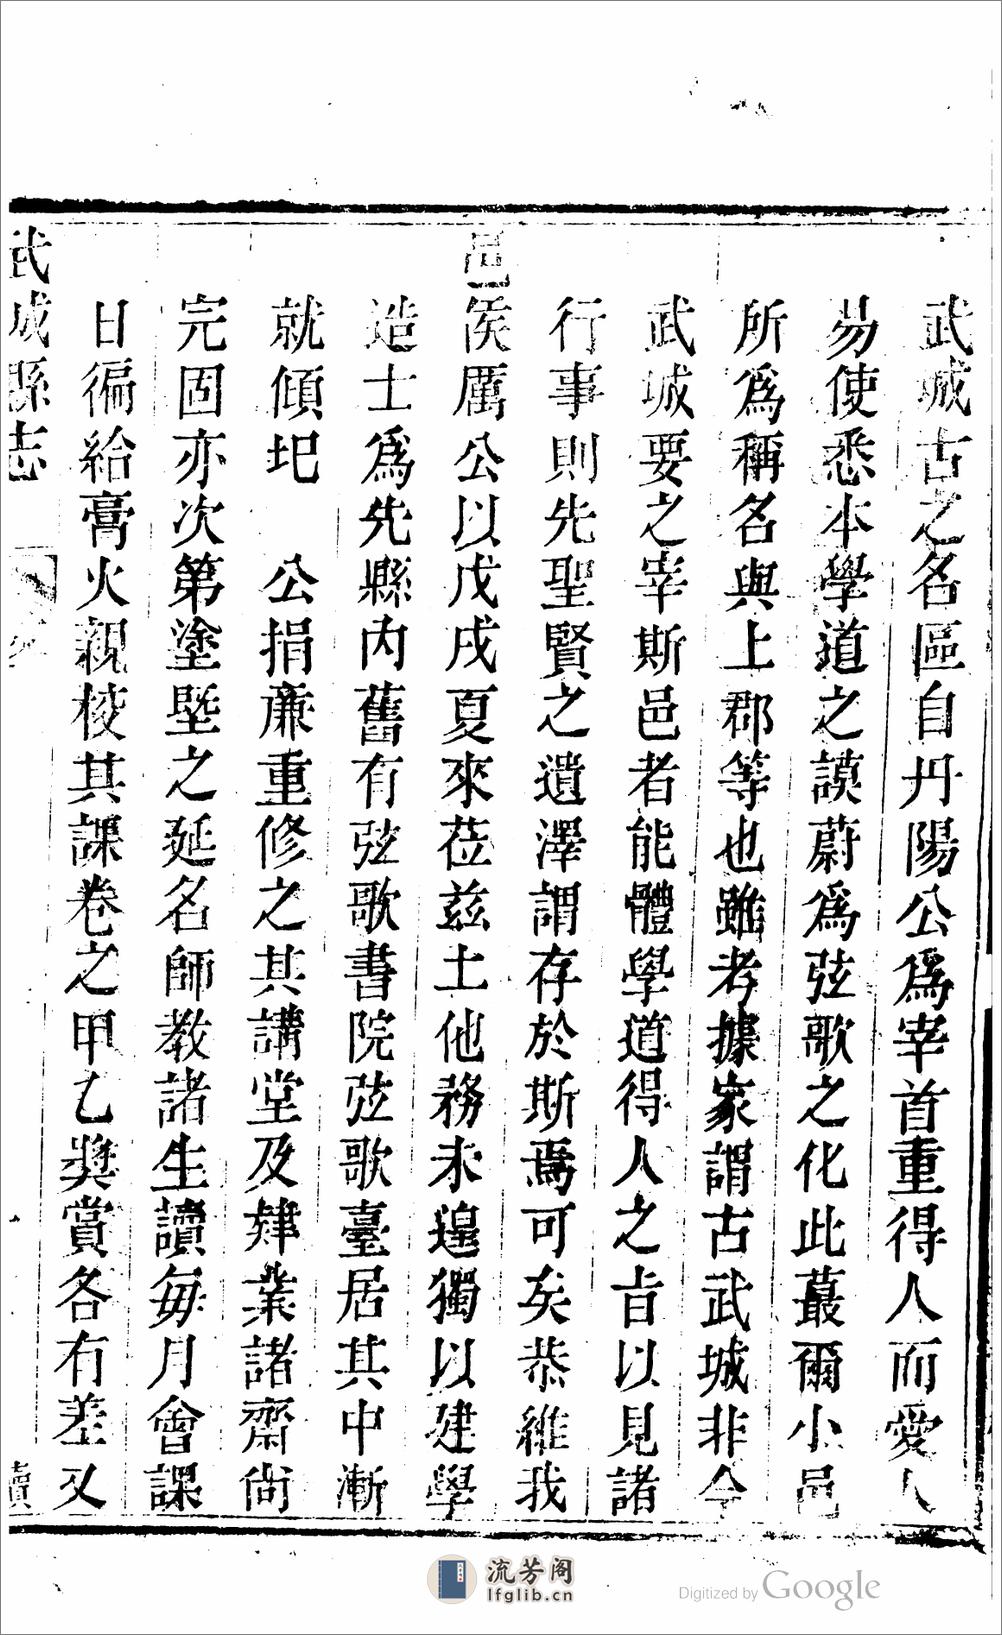 武城古之名區自丹陽公爲宰首重得人而愛人
易使悉本學道之謨蔚爲弦歌之化此蕞爾小邑
所爲稱名與上郡等也雖考據家謂古武城非今
武城要之宰斯邑者能體學道得人之旨以見諸
行事則先聖賢之遺澤謂存於斯焉可矣恭維我
邑侯厲公以戊戌夏來莅兹土他務未遑獨以建學
造士爲先縣内舊有弦歌書院弦歌臺居其中漸
就傾圮 公捐亷重修之其講堂及肄業諸齋尙
完固亦次第塗塈之延名師教諸生讀每月會課
日徧給膏火親校其課卷之甲乙獎賞各有差又
武城縣志
續
流芳阁
lfglib.cn
Digitized by Google